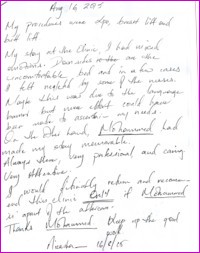 Aug 16, 2015
My procedures were lipo, breast lift and
butt lift.
My stay at the Clinic, I had mixed
were
uncomfortable, bed and in a few cases
I felt neglected by some of the nurses.
Maybe this was due to the language
barrier but more effort could have
been made to my needs.
On the other hand, Mohammed had
made my stay memorable.
Always there, very and caring.
Very Attentive.
I would definitely return and
this clinic only if Mohammed
is apart of the
Thanks Mohammed keep up the good
16/8/15